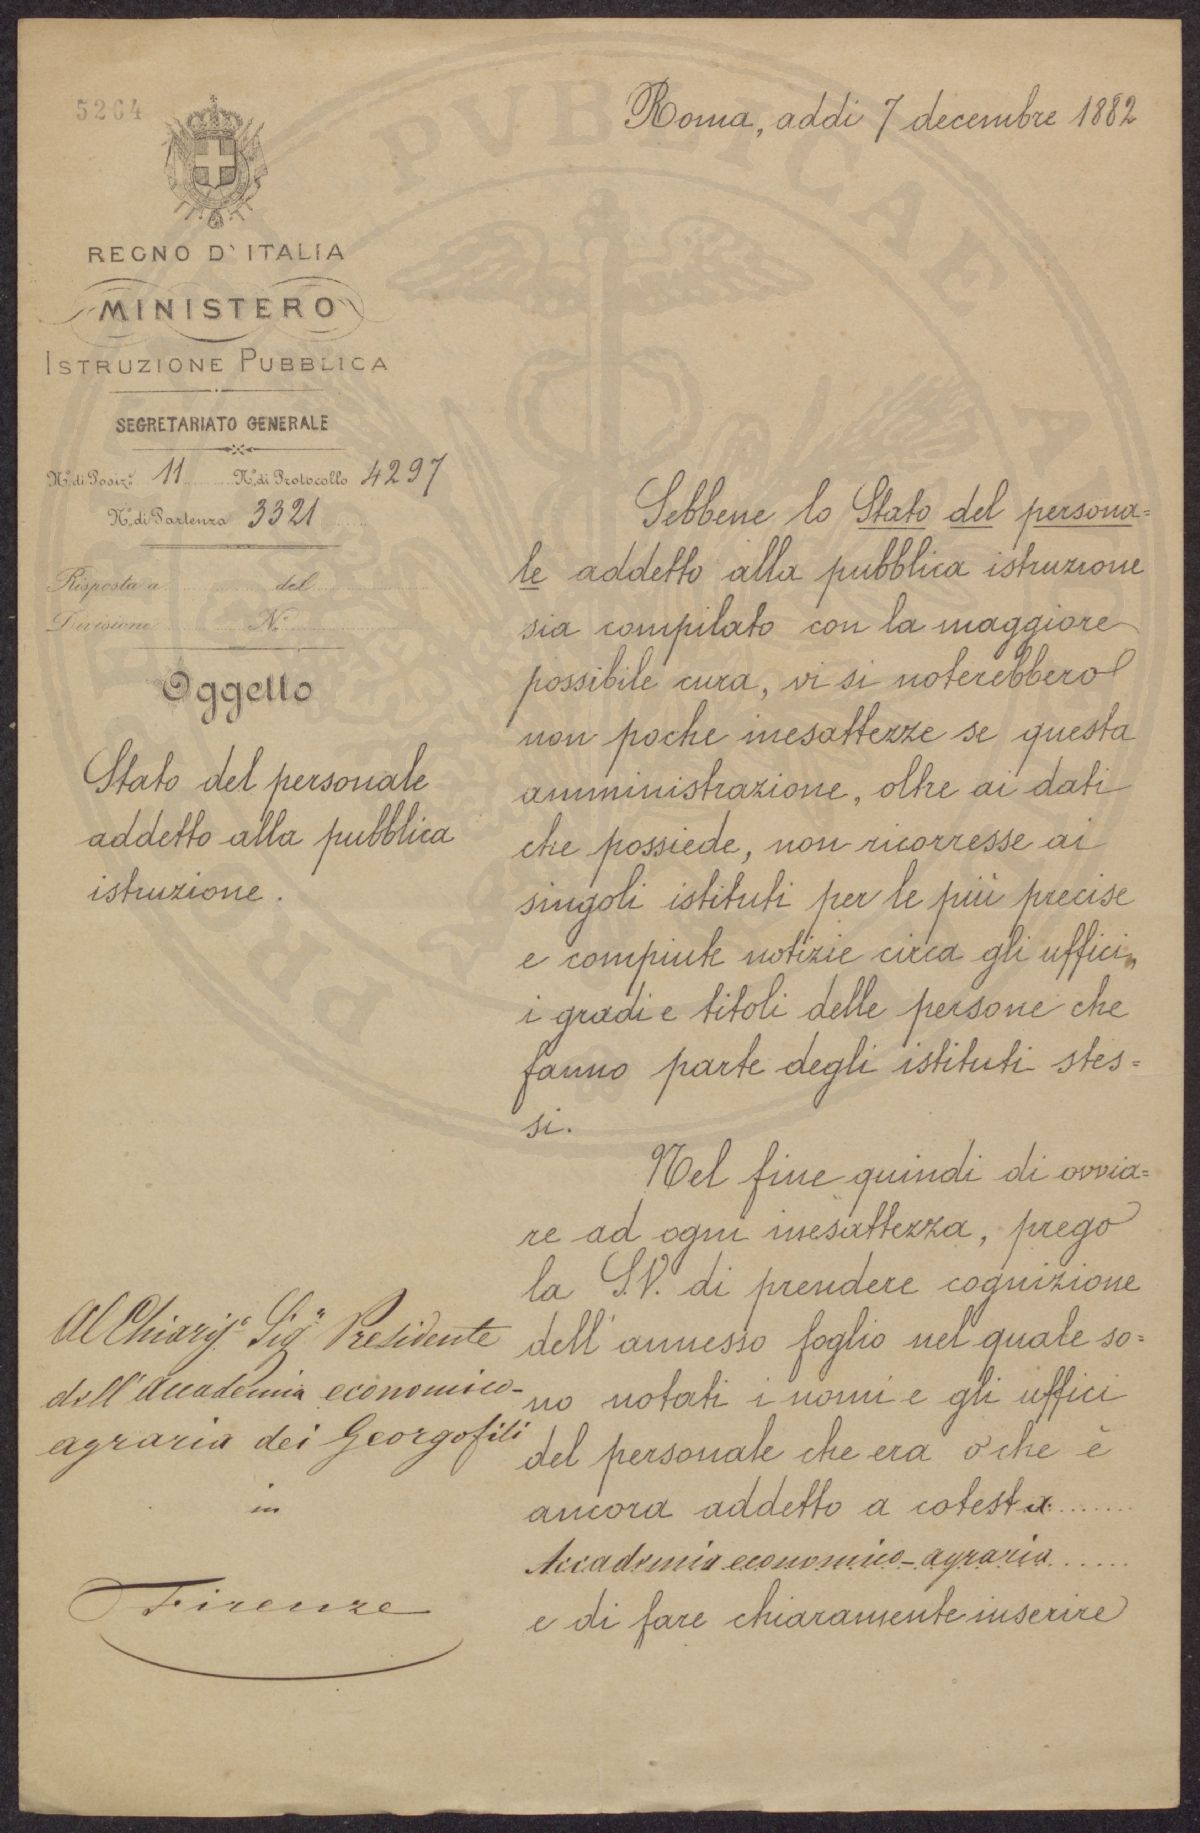 5264
Roma, addi 7 decembre 1882
REGNO D'ITALIA
MINISTERO
ISTRUZIONE PUBBLICA
SEGRETARIATO GENERALE
N.° di Posiz.e 11 N.° di Protocollo 4297
N.° di Partenza 3321
Risposta a del
Divisione N.°
Oggetto
Stato del personale
addetto alla pubblica
istruzione.
Al Chiariss.o Sig.r Presidente
dell'Accademia economico-
agraria dei Georgofili
in
Firenze
Sebbene lo Stato del persona=
le addetto alla pubblica istruzione
sia compilato con la maggiore
possibile cura, vi si noterebbero
non poche inesattezze se questa
amministrazione, oltre ai dati
che possiede, non ricorresse ai
singoli istituti per le più precise
e compiute notizie circa gli uffici,
i gradi e titoli delle persone che
fanno parte degli istituti stes=
si.
Nel fine quindi di ovvia=
re ad ogni inesattezza, prego
la S.V. di prendere cognizione
dell'annesso foglio nel quale so=
no notati i nomi e gli uffici
del personale che era o che è
ancora addetto a cotesta
Accademia economico-agraria
e di fare chiaramente inserire